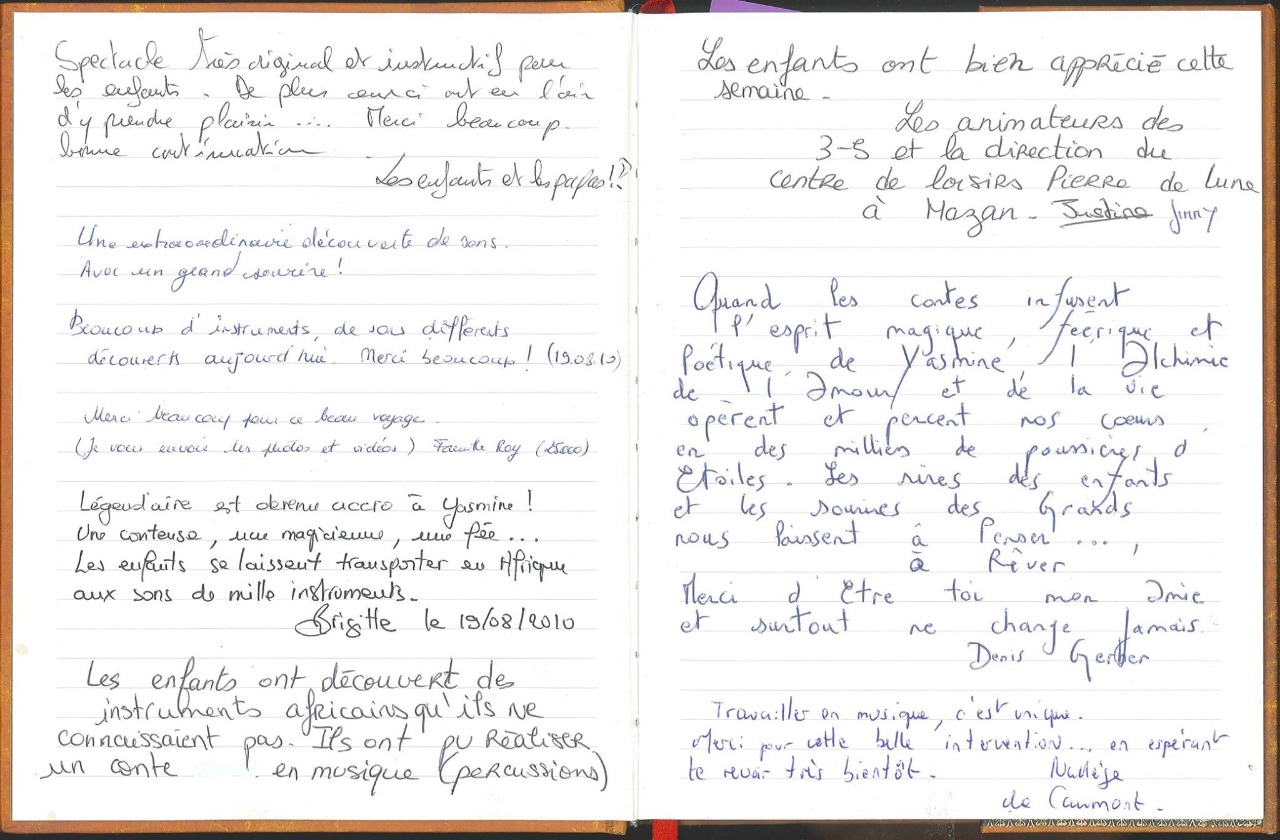 Spectacle très original et instructif pour
les enfants. De plus ceux ci ont eu l'air
d'y prendre plaisir .... Merci beaucoup.
bonne continuation
Les enfants et les papas!?
Une extraordinaire découverte de sons.
Avec un grand sourire!
Beaucoup d'instruments, de sons différents
découverts aujourd'hui. Merci beaucoup! (19.08.10)
Merci beaucoup pour ce beau voyage.
(Je vous envoie les photos et vidéos) Famille Roy (25000)
Légend'aire est devenu accro à Yasmine!
Une conteuse, une magicienne, une fée...
Les enfants se laissent transporter en Afrique
aux sons de mille instruments.
Brigitte le 19/08/2010
Les enfants ont découvert des
instruments africains qu'ils ne
connaissaient pas. Ils ont pu réaliser
un conte en musique (percussions)
Les enfants ont bien apprécié cette
semaine.
Les animateurs des
3-5 et la direction du
centre de loisirs Pierre de Lune
à Mazan. Justine Jinny
Quand les contes infusent
l'esprit magique, féérique et
Poétique, de Yasmine, l'Alchimie
de l'Amour et de la vie
opèrent et percent nos coeurs
en des milliers de poussières d
Etoiles. Les rires des enfants
et les sourires des Grands
nous laissent à Penser ...,
à Rêver
Merci d'Etre toi mon Amie
et surtout ne change Jamais.
Denis Gerber
Travailler en musique, c'est unique.
Merci pour cette belle intervention... en espérant
te revoir très bientôt. Nadège
de Caumont.